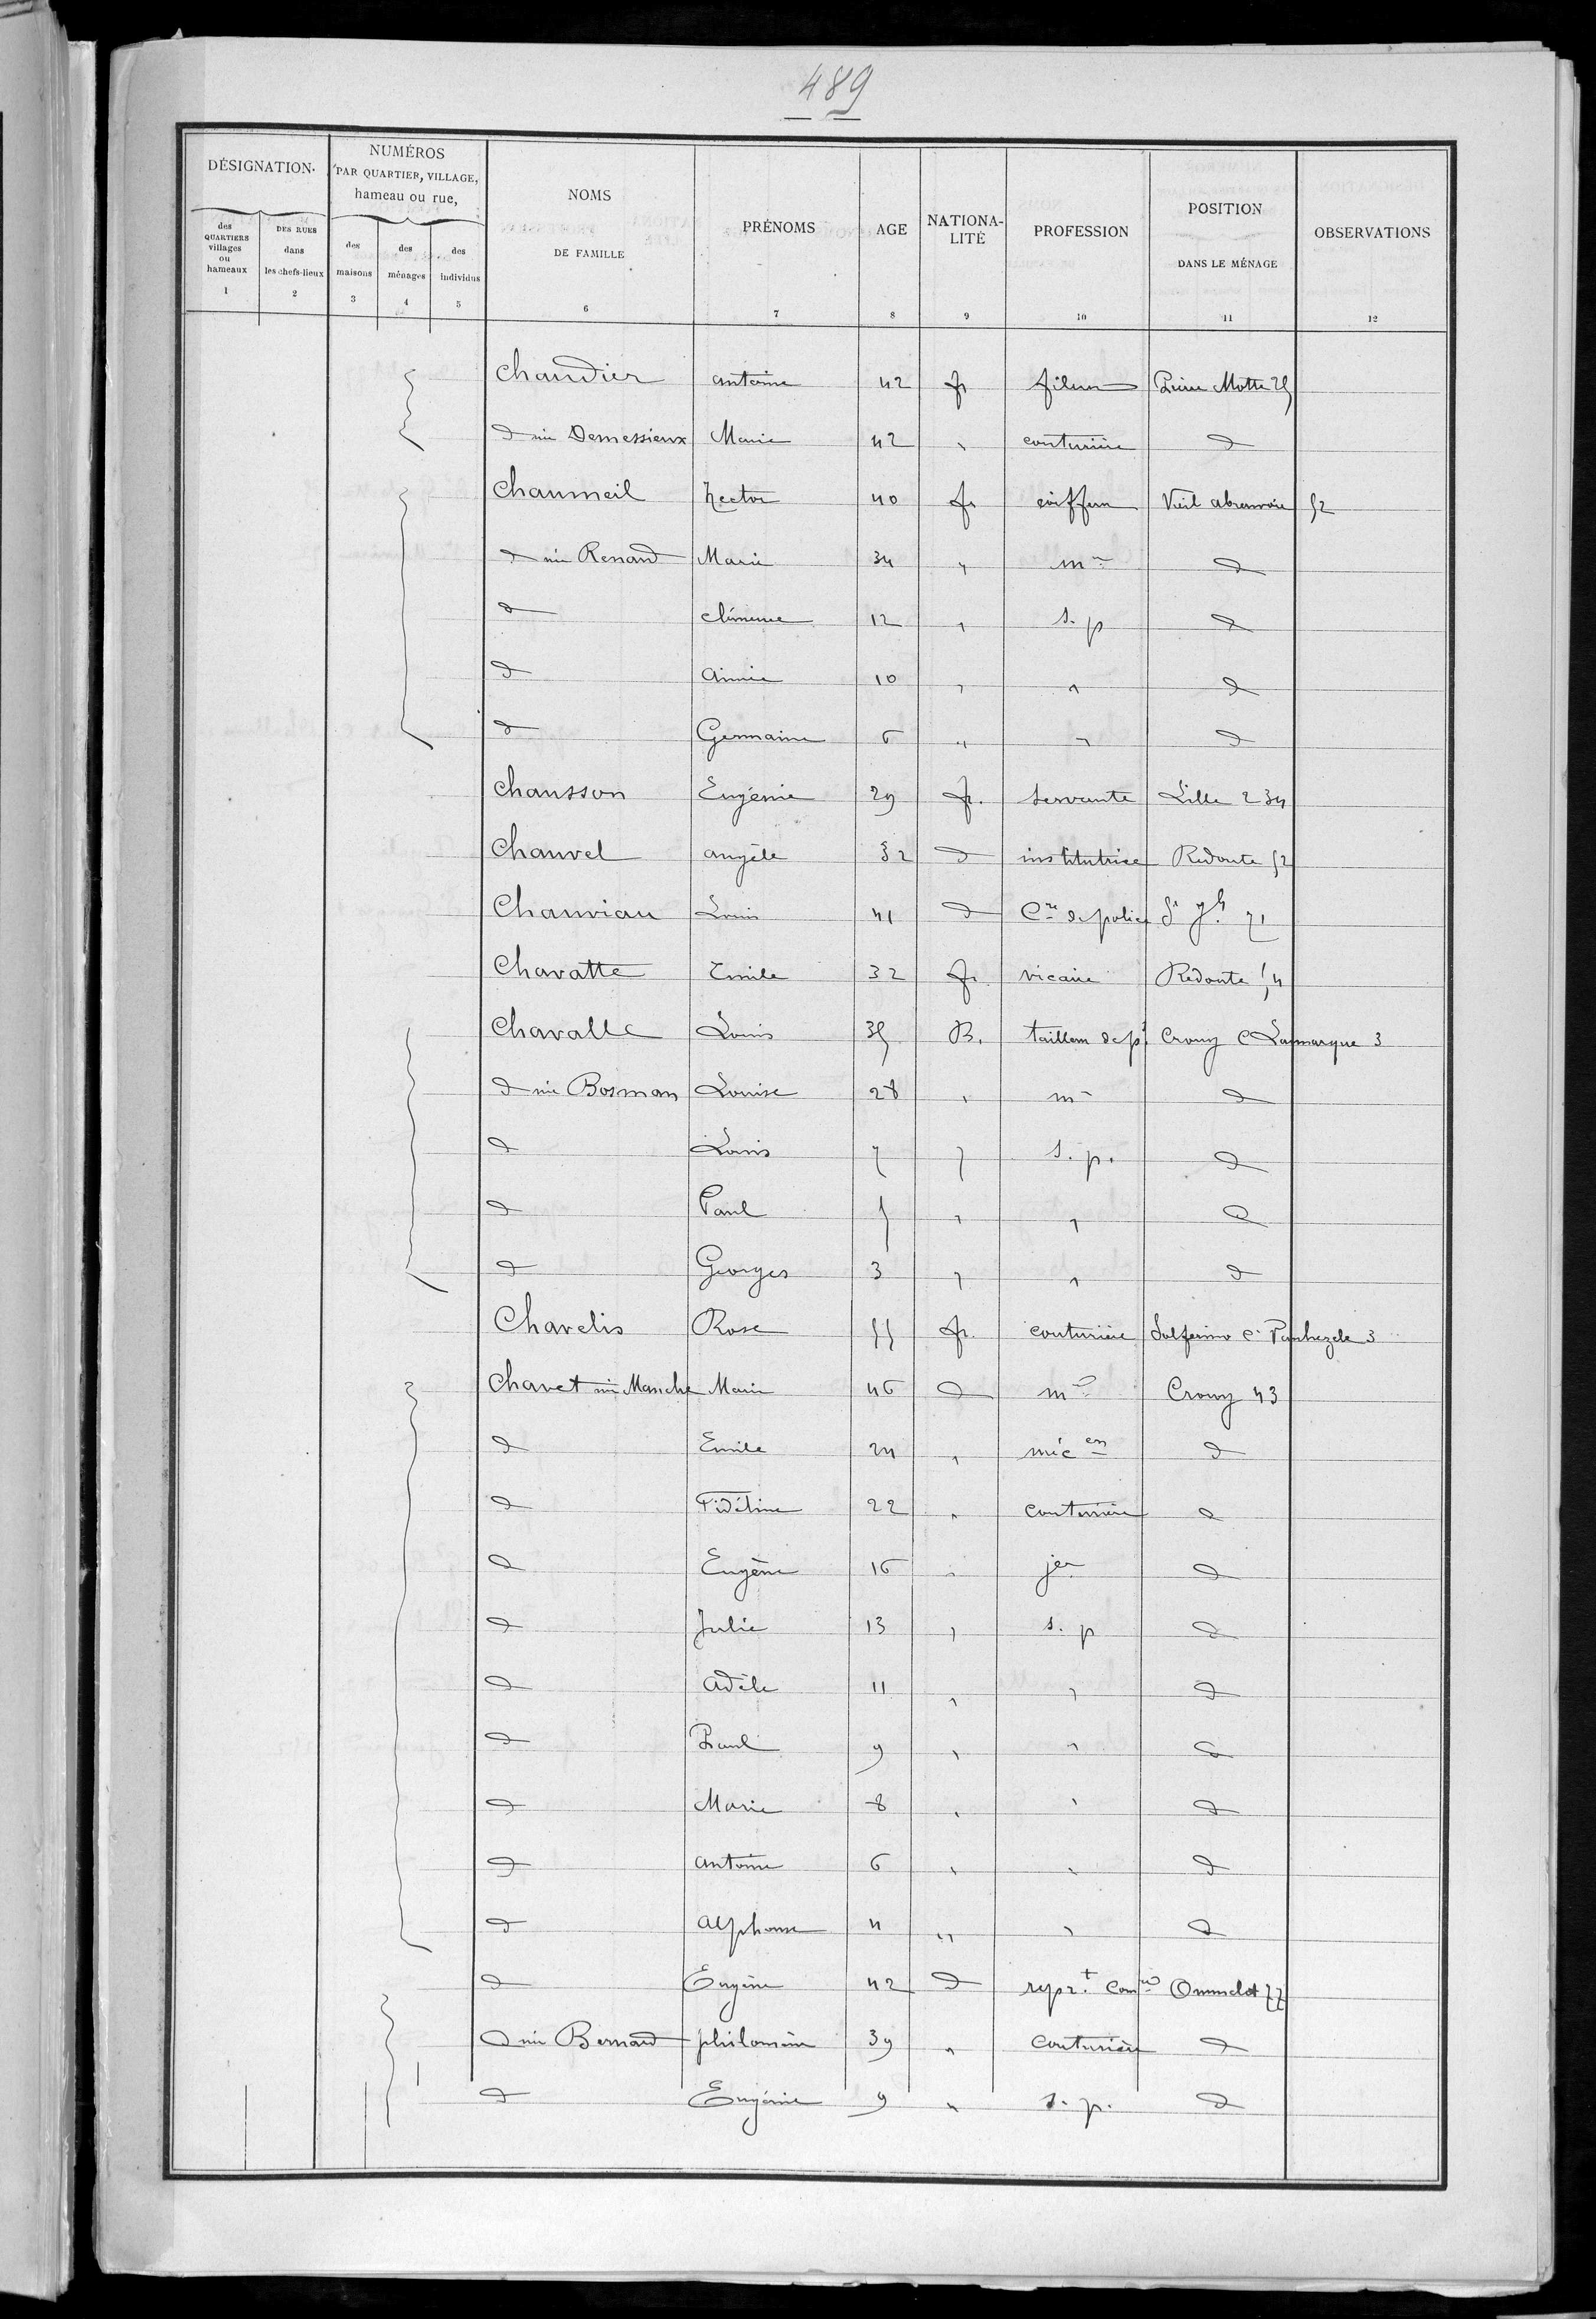 489
DÉSIGNATION NUMÉROS PAR QUARTIER, VILLAGE, hameau ou rue, NOMS DE FAMILLE PRÉNOMS AGE NATIONALITÉ PROFESSION POSITION DANS LE MÉNAGE OBSERVATIONS
des QUARTIERS villages ou hameaux DES RUES dans les chefs-lieux des maisons des ménages des individus
1 2 3 4 5 6 7 8 9 10 11 12
Chaudier antoine 42 fr fileur Pierre Motte 25
d née Demessieux Marie 42 " couturière d
Chaumeil hector 40 fr coiffeur Vieil abreuvoir 52
d née Renard Marie 34 " mre d
d clémence 12 " s. p d
d aimée 10 " " d
d Germaine 6 " " d
Chausson Eugénie 29 fr. servante Lille 234
Chauvel angèle 32 d institutrice Redoute 52
Chauviau Louis 41 d Cre de police St Jh 71
Chavatte Emile 32 fr vicaire Redoute 54
Chavalle Louis 35 B. tailleur de p. Crouy C Lammarque 3
d née Bosman Louise 28 " m d
d Louis 7 " s. p. d
d Paul 5 " " d
d Georges 3 " " d
Chavelis Rose 55 fr. couturière Solferino c. 3
Chavet née Manche Marie 46 d mre Crouy 43
d Emile 24 " méc en d
d Fidéline 22 " couturière d
d Eugène 16 " jer d
d Julie 13 " s. p d
d adèle 11 " " d
d Paul 9 " " d
d Marie 8 " " d
d antoine 6 " " d
d alphonse 4 " " d
d Eugène 42 d repr.t Comce Ommelet 77
d née Bernard philomène 39 " Couturière d
d Eugénie 9 " s. p. d